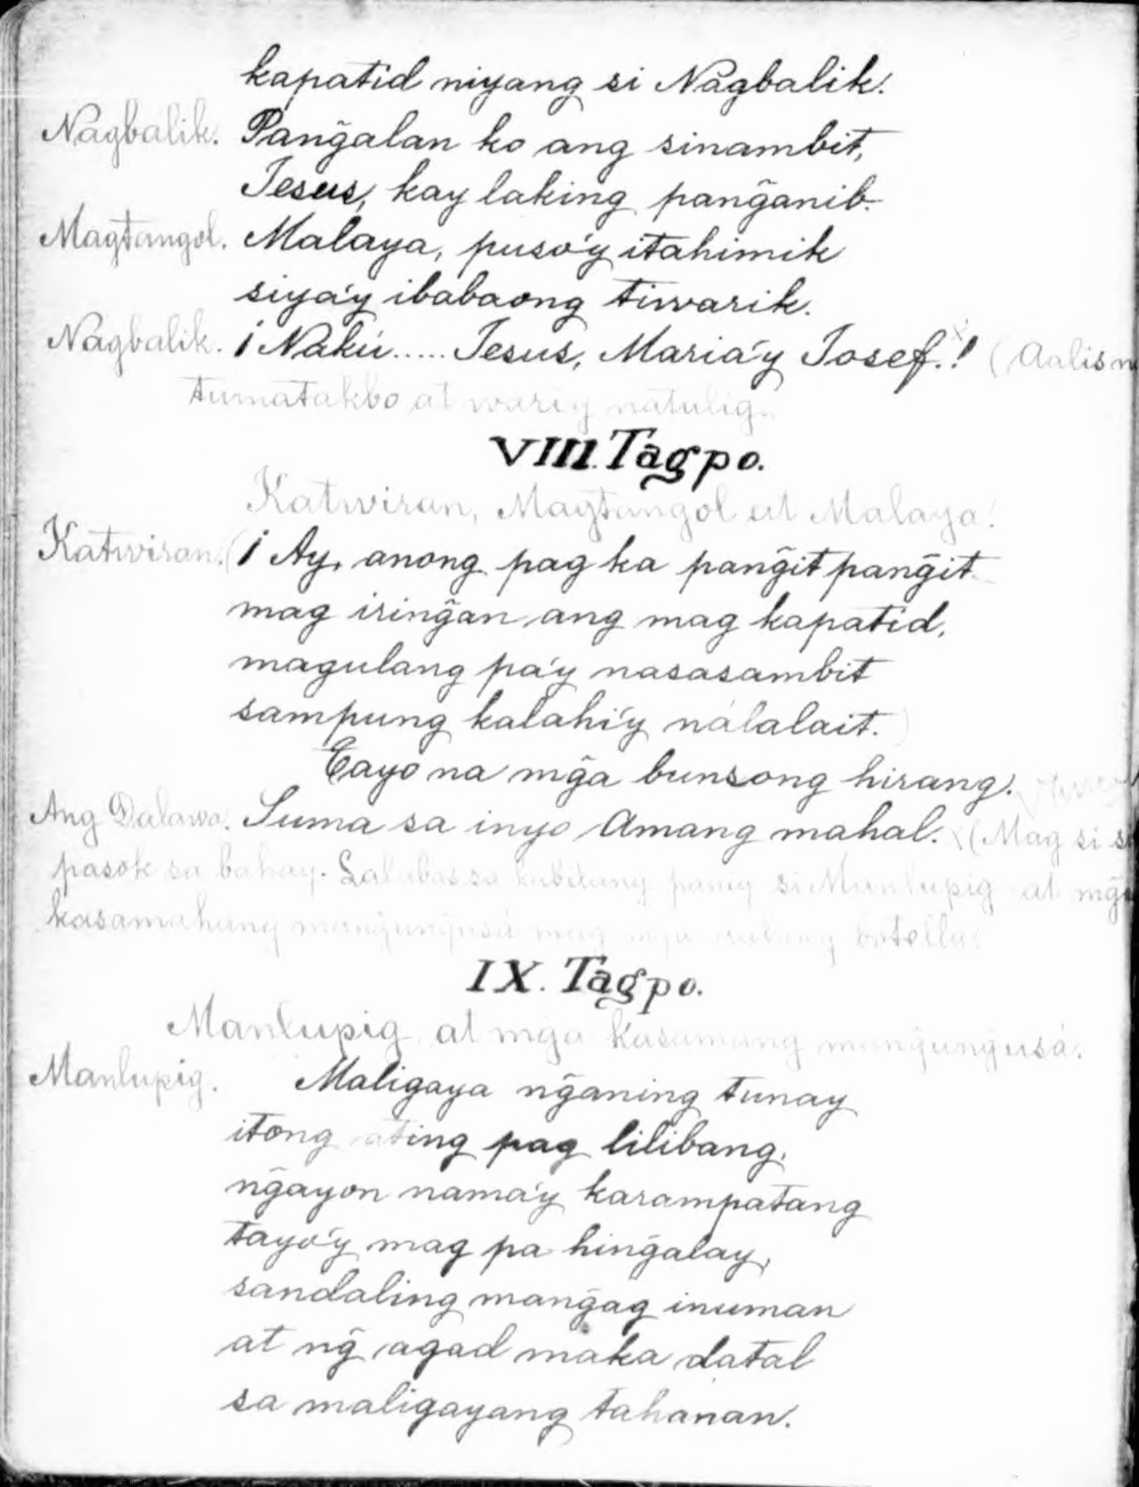 kapatid niyang si Nagbalik.
Nagbalik. Pang̃alan ko ang sinambit,
Jesus, kay laking pang̃anib.
Magtangol. Malaya, puso'y itahimik
siya'y ibabaong tiwarik.
Nagbalik. ¡Nakú..... Jesus, Maria'y Josef.! (Aalis na
tumatakbo at wari'y natulig.
VIII. Tagpo.
Katwiran, Magtangol at Malaya.
Katwiran. (¡Ay, anong pag ka pang̃it pang̃it
mag iring̃an ang mag kapatid,
magulang pa'y nasasambit
sampung kalahi'y nalalait.)
Tayo na mg̃a bunsong hirang.
Ang Dalawa. Suma sa inyo Amang mahal. (Mag si
pasok sa bahay. Lalabas sa kabilang panig si Manlupig at mg̃a
kasamahang mang̃ung̃usá botella.
IX. Tagpo.
Manlupig at mg̃a kasamang mang̃ung̃usá.
Manlupig. Maligaya ng̃aning tunay
itong ating pag lilibang,
ng̃ayon nama'y karampatang
tayo'y mag pa hing̃alay,
sandaling mang̃ag inuman
at ng̃ agad maka datal
sa maligayang tahanan.